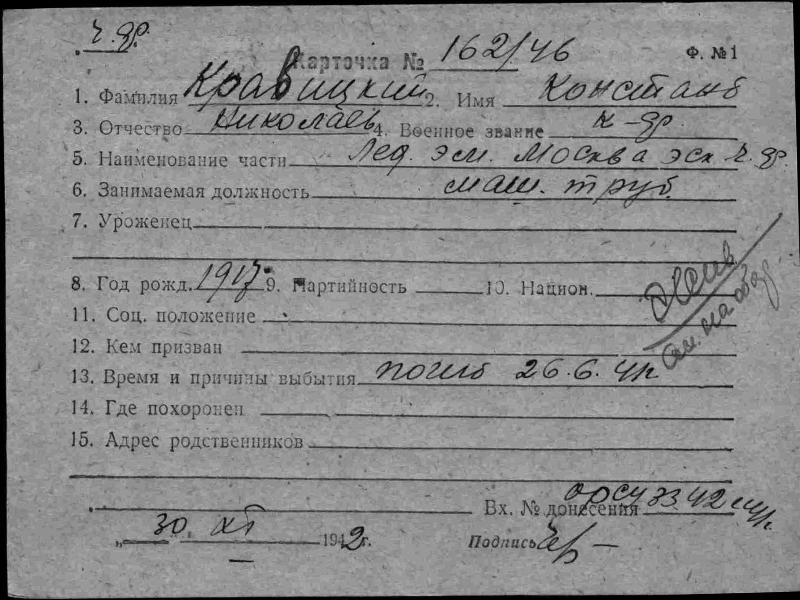 ч. др.
Карточка № 162/46 Ф. № 1
1. Фамилия Кравицкий 2. Имя Констант
3. Отчество Николаев 4. Военное звание к-др.
5. Наименование части Лед. эсм. Москва эск. ч. др.
6. Занимаемая должность маш. труб.
7. Уроженец
8. Год рожд. 1917 9. Партийность 10. Национ.
11. Соц. положение
12. Кем призван
13. Время и причины выбытия погиб 26.6.41г.
14. Где похоронен
15. Адрес родственников
См. на обор.
Вх. № донесения 3342
„30 XI 1942г. Подпись